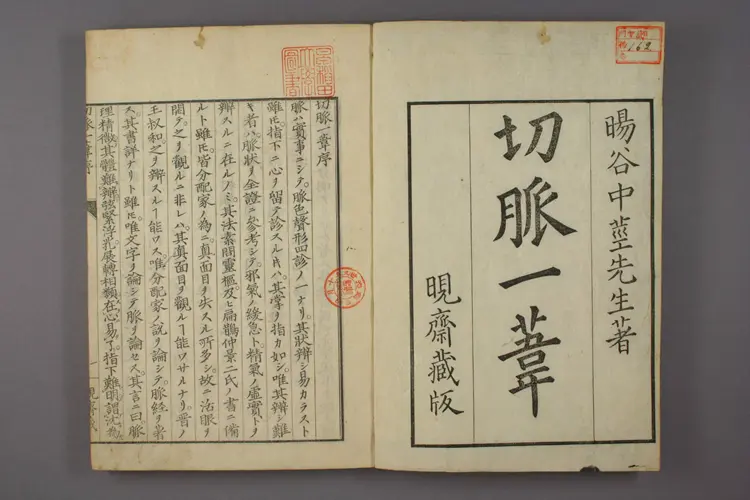 暘谷中莖先生著
切脈一葦
晛齋藏版
切脈一葦序
脈ハ實事ニシテ。脈色聲形四診ノ一ナリ。其狀辨シ易カラスト
雖𪜈。指下ニ心ヲ留テ診スル𪜈ハ。其掌ヲ指カ如シ。唯其辨シ難
キ者ハ。脈狀ヲ全證ニ參考シテ。邪氣ノ緩急ト。精氣ノ虛實トヲ
辨スルニ在ルノミ。其法素問靈樞及ヒ扁鵲仲景二氏ノ書ニ備
ルト雖𪜈。皆分配家ノ爲ニ。眞面目ヲ失スル所多シ。故ニ活眼ヲ
開テ之ヲ觀ルニ非レハ。其眞面目ヲ觀ルヿ能ワサルナリ。晉ノ
王叔和之ヲ辨スルヿ能ワス。唯分配家ノ說ヲ論シテ。脈經ヲ著
ス。其書詳ナリト雖𪜈。唯文字ヲ論シテ脈ヲ論セス。其言ニ曰。脈
理精微。其體難辨。弦緊浮芤。展轉相類。在心易了。指下難明。謂沈爲
切脈一葦序